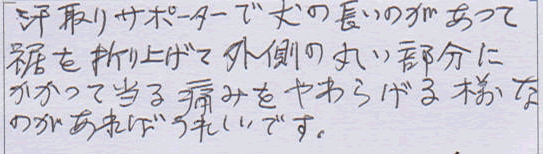 汗取りサポーターで丈の長いのがあって
裾を折り上げて外側の丸い部分に
かかって当る痛みをやわらげる様な
のがあればうれしいです。